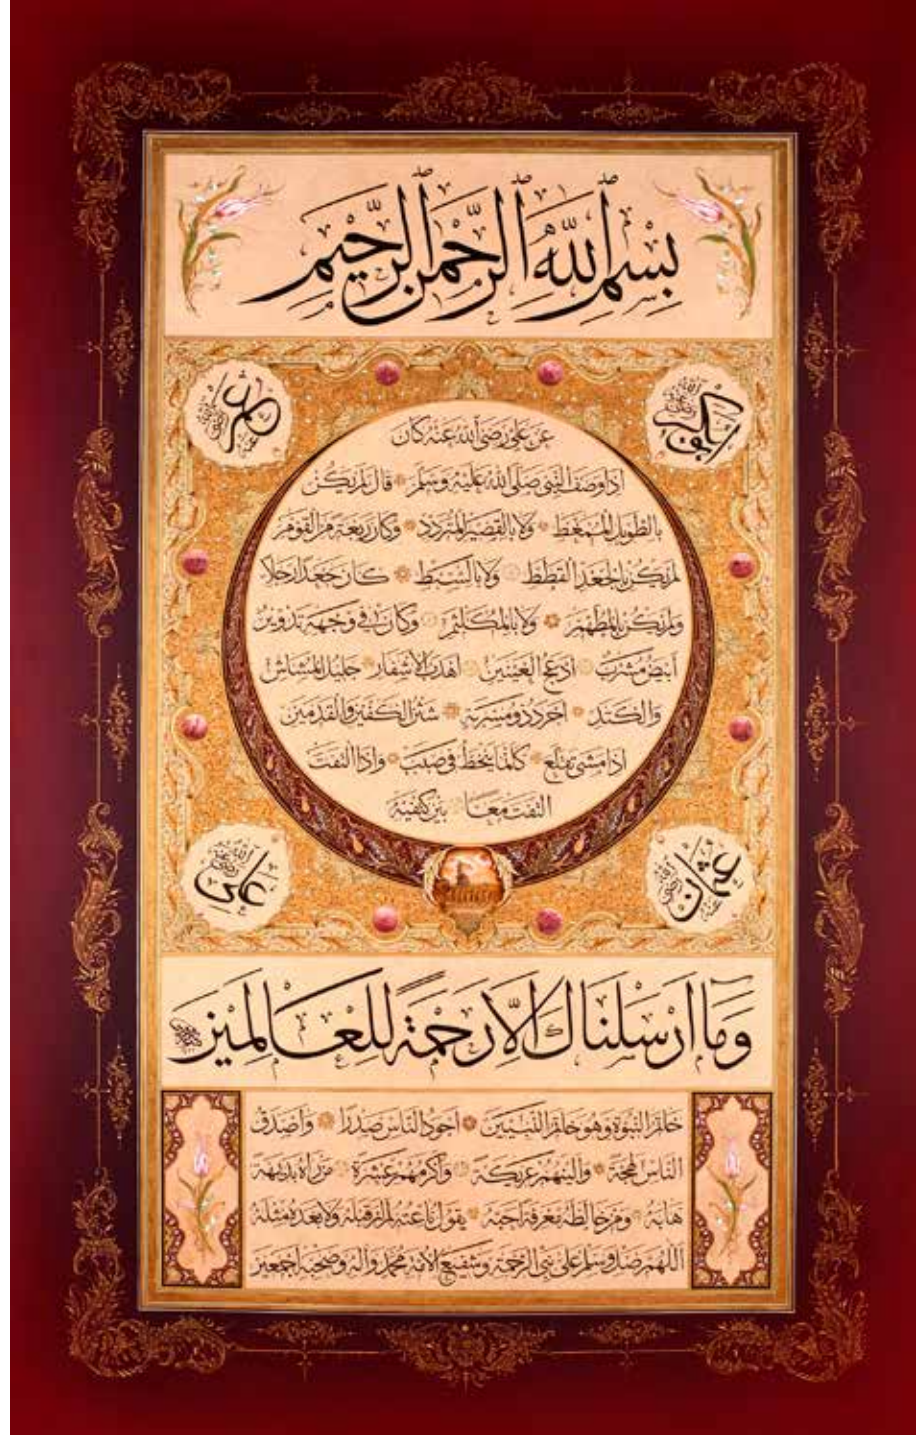 بِسْمِ اللَّهِ الرَّحْمَنِ الرَّحِيمِ
أبو بكر رضي الله عنه
عمر رضي الله عنه
عن علي رضي الله عنه كان
اذا وصف النبي صلى الله عليه وسلم قال لم يكن
بالطويل الممغط ولا بالقصير المتردد وكان ربعة من القوم
لم يكن بالجعد القطط ولا بالسبط كان جعدا رجلا
ولم يكن بالمطهم ولا بالمكلثم وكان في وجهه تدوير
أبيض مشرب أدعج العينين أهدب الأشفار جليل المشاش
والكتد أجرد ذو مسربة شثن الكفين والقدمين
اذا مشى تقلع كأنما ينحط في صبب واذا التفت
التفت معا بين كتفيه
عثمان رضي الله عنه
علي رضي الله عنه
وَمَا أَرْسَلْنَاكَ إِلَّا رَحْمَةً لِلْعَالَمِينَ
خاتم النبوة وهو خاتم النبيين أجود الناس صدرا وأصدق
الناس لهجة وألينهم عريكة وأكرمهم عشرة من رآه بديهة
هابه ومن خالطه معرفة أحبه يقول ناعته لم أر قبله ولا بعده مثله
اللهم صل وسلم على نبي الرحمة وشفيع الأمة محمد وآله وصحبه أجمعين